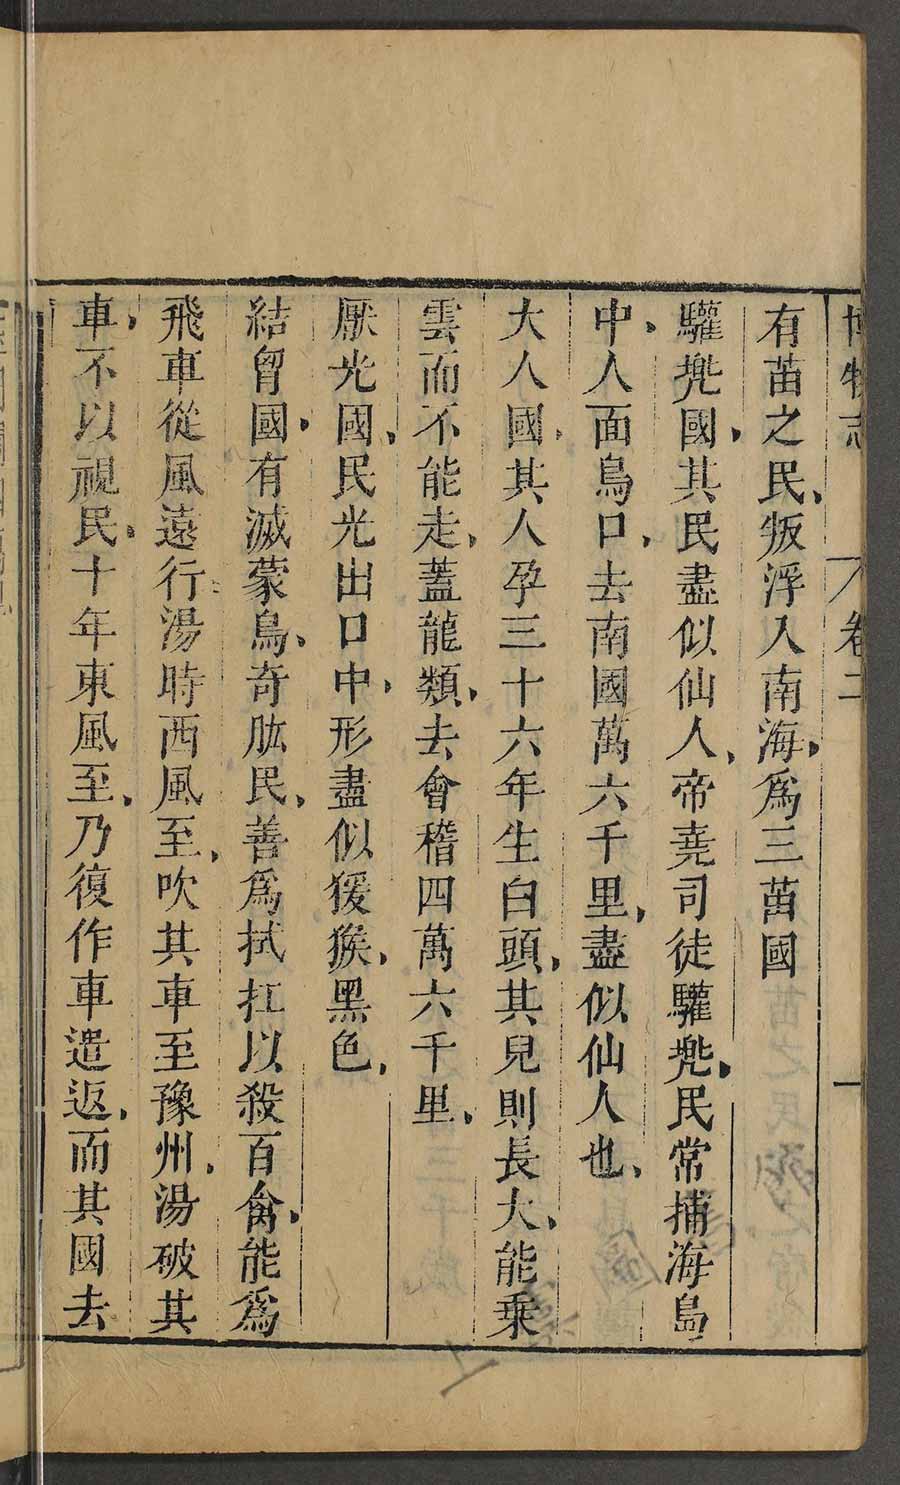 博物志 卷二 一
有苗之民、叛浮入南海、爲三苗國
驩兠國、其民盡似仙人、帝堯司徒驩兠、民常捕海島
中、人面鳥口、去南國萬六千里、盡似仙人也、
大人國、其人孕三十六年生白頭、其兒則長大、能乗
雲而不能走、蓋龍類、去會稽四萬六千里、
厭光國、民光出口中、形盡似猨猴、黑色、
結胷國、有滅蒙鳥、奇肱民、善爲拭扛以殺百禽、能爲
飛車從風遠行、湯時西風至、吹其車至豫州、湯破其
車、不以視民、十年東風至、乃復作車遣返、而其國去